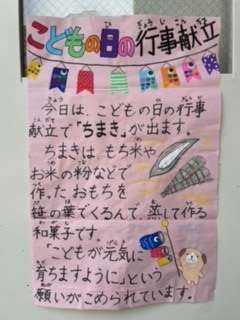 こどもの日の行事献立
今日は、こどもの日の行事
献立で「ちまき」が出ます。
ちまきは、もち米や
お米の粉などで
作ったおもちを
笹の葉でくるんで、蒸して作る
和菓子です。
「こどもが元気に
育ちますように」という
願いがこめられています。